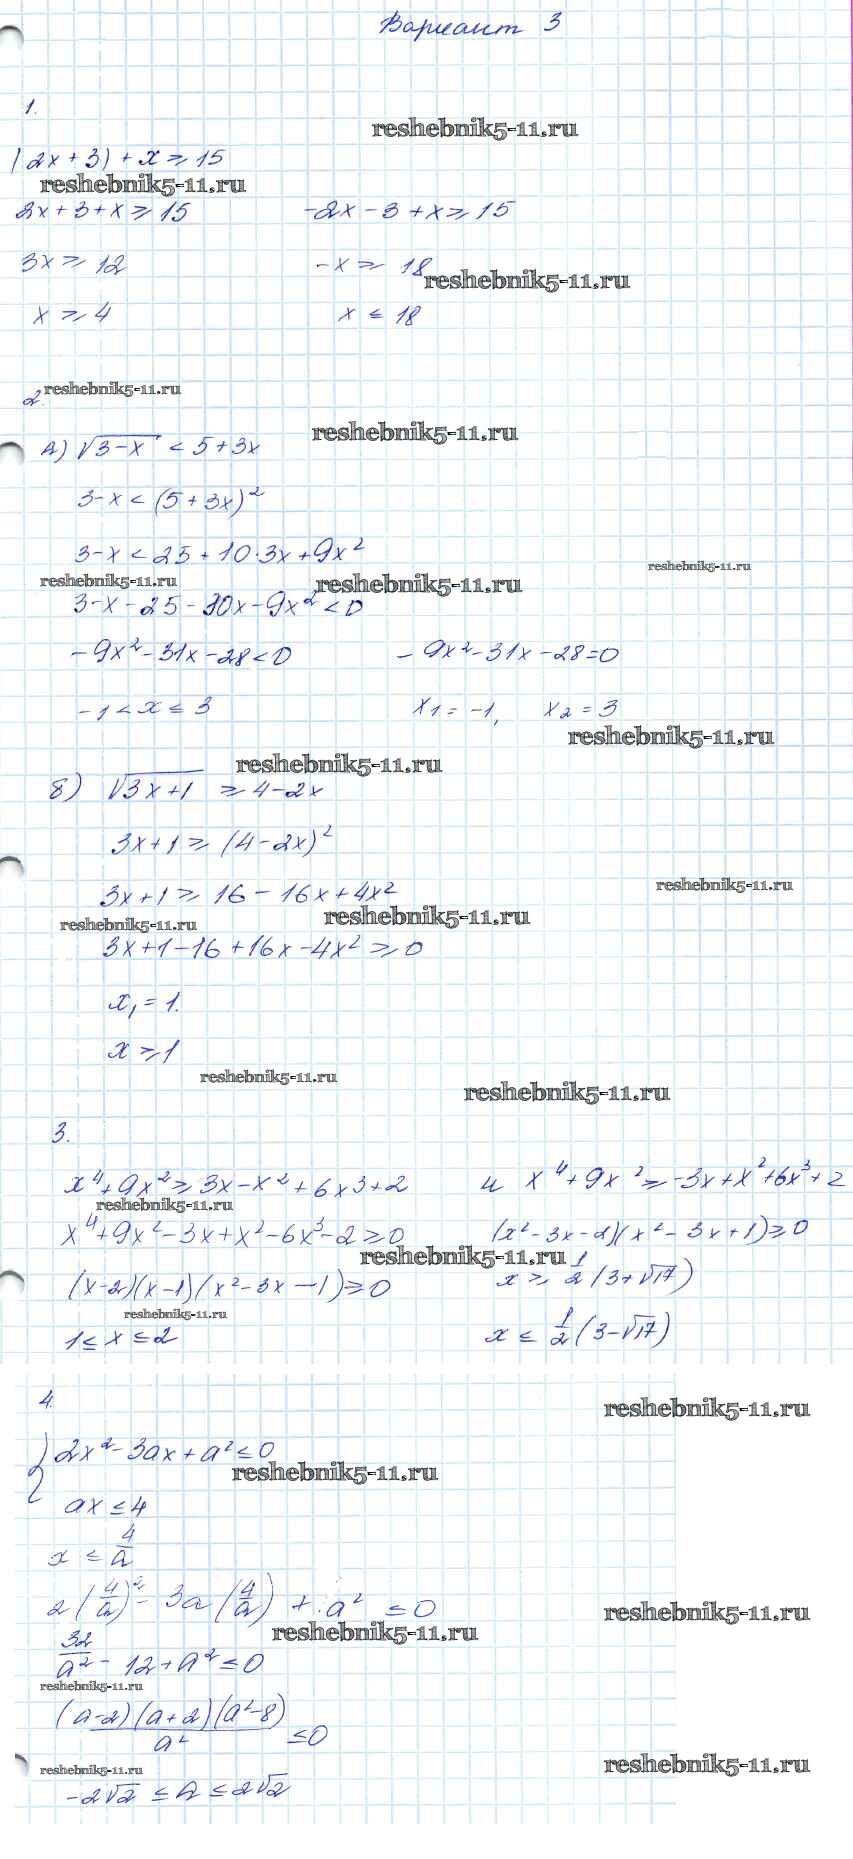 Вариант 3
1.
reshebnik5-11.ru
|2x+3|+x≥15
reshebnik5-11.ru
2x+3+x≥15 -2x-3+x≥15
3x≥12 -x≥18
reshebnik5-11.ru
x≥4 x≤18
reshebnik5-11.ru
2.
reshebnik5-11.ru
А) √3-x < 5+3x
3-x<(5+3x)²
3-x<25+10·3x+9x²
reshebnik5-11.ru
reshebnik5-11.ru reshebnik5-11.ru
3-x-25-30x-9x²<0
-9x²-31x-28<0 -9x²-31x-28=0
-1<x≤3 x₁=-1, x₂=3
reshebnik5-11.ru
reshebnik5-11.ru
Б) √3x+1 ≥4-2x
3x+1≥(4-2x)²
3x+1≥16-16x+4x²
reshebnik5-11.ru
reshebnik5-11.ru reshebnik5-11.ru
3x+1-16+16x-4x²≥0
x₁=1.
x≥1
reshebnik5-11.ru reshebnik5-11.ru
3.
x⁴+9x²≥3x-x²+6x³+2 и x⁴+9x²≥-3x+x²+6x³+2
reshebnik5-11.ru
x⁴+9x²-3x+x²-6x³-2≥0 (x²-3x-2)(x²-3x+1)≥0
reshebnik5-11.ru
(x-2)(x-1)(x²-3x-1)≥0 x≥ 1/2 (3+√17)
reshebnik5-11.ru
1≤x≤2 x≤ 1/2 (3-√17)
4.
reshebnik5-11.ru
{2x²-3ax+a²≤0
reshebnik5-11.ru
ax≤4
x≤ 4/a
2(4/a)²-3a(4/a)+a²≤0
reshebnik5-11.ru
reshebnik5-11.ru
32/a²-12+a²≤0
reshebnik5-11.ru
(a-2)(a+2)(a²-8)/a² ≤0
reshebnik5-11.ru reshebnik5-11.ru
-2√2≤a≤2√2